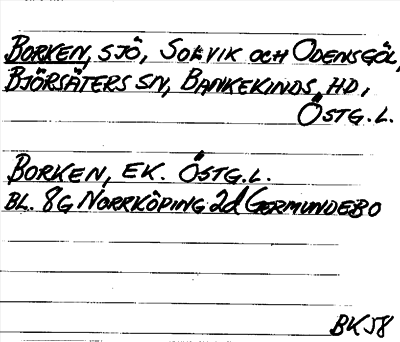 BORKEN, SJÖ, SOLVIK OCH ODENSGÖL,
BJÖRSÄTERS SN, BANKEKINDS HD,
ÖSTG.L.
BORKEN, EK. ÖSTG.L.
BL. 8G NORRKÖPING 2d GERMUNDEBO
BK58